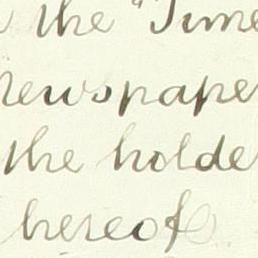 the "Time
Newspape
the holde
hereof